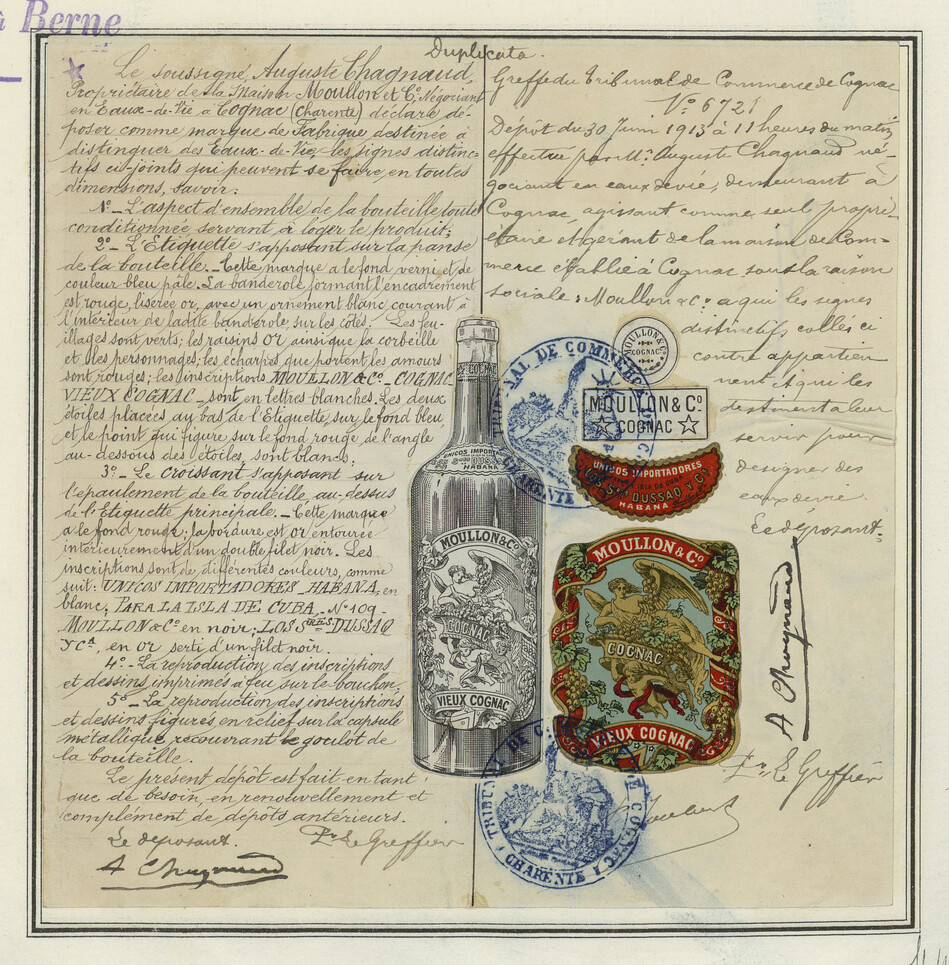 à Berne
Duplicata.
Le soussigné, Auguste Chagnaud,
Propriétaire de la Maison Moullon et Cº, Négociant
en Eaux-de-Vie à Cognac (Charente) déclare dé-
poser comme marque de Fabrique destinée à
distinguer des Eaux-de-Vie, les signes distinc-
tifs ci-joints qui peuvent se faire en toutes
dimensions, savoir:
1º_ L'aspect d'ensemble de la bouteille toute
conditionnée servant à loger le produit;
2º_ L'Etiquette s'apposant sur la panse
de la bouteille._ Cette marque a le fond verni et de
couleur bleu pâle. La banderole formant l'encadrement
est rouge, liserée or, avec un ornement blanc courant à
l'intérieur de ladite banderole, sur les côtés. Les feu-
illages sont verts; les raisins or ainsi que la corbeille
et les personnages; les écharpes que portent les amours
sont rouges; les inscriptions MOULLON & Cº_ COGNAC_
VIEUX COGNAC_ sont en lettres blanches. Les deux
étoiles placées au bas de l'Etiquette sur le fond bleu
et le point qui figure sur le fond rouge de l'angle
au-dessous des étoiles, sont blancs;
3º_ Le croissant s'apposant sur
l'épaulement de la bouteille, au-dessus
de l'Etiquette principale._ Cette marque
a le fond rouge; la bordure est or entourée
intérieurement d'un double filet noir. Les
inscriptions sont de différentes couleurs, comme
suit: UNICOS IMPORTADORES_HABANA, en
blanc; PARA LA ISLA DE CUBA_Nº 109_
MOULLON & Cº en noir; LOS Sres DUSSAQ
Y Cª, en or serti d'un filet noir.
4º_ La reproduction des inscriptions
et dessins imprimés à feu sur le bouchon;
5º_ La reproduction des inscriptions
et dessins figurés en relief sur la capsule
métallique recouvrant le goulot de
la bouteille.
Le présent dépôt est fait en tant
que de besoin, en renouvellement et
complément de dépôts antérieurs.
Le déposant.
Pr. Le Greffier
A Chagnaud
Greffe du Tribunal de Commerce de Cognac
Nº 6721
Dépôt du 30 Juin 1913 à 11 heures du matin
effectué par M. Auguste Chagnaud né-
gociant en eaux de vie, demeurant à
Cognac agissant comme seul proprié-
étaire et gérant de la maison de Com-
merce établie à Cognac sous la raison
sociale: Moullon & Cº a qui les signes
distinctifs collés ci
contre appartien
nent et qui les
destinent a leur
servir pour
désigner des
eaux de vie.
Le déposant.
A Chagnaud
Pr. Le Greffier
MOULLON & Cº
COGNAC
MOULLON & Cº
COGNAC
UNICOS IMPORTADORES
DUSSAQ Y Cª
HABANA
MOULLON & Cº
COGNAC
VIEUX COGNAC
UNICOS IMPORTADORES
HABANA
MOULLON & Cº
COGNAC
VIEUX COGNAC
TRIBUNAL DE COMMERCE
CHARENTE
TRIBUNAL DE COMMERCE DE COGNAC
CHARENTE